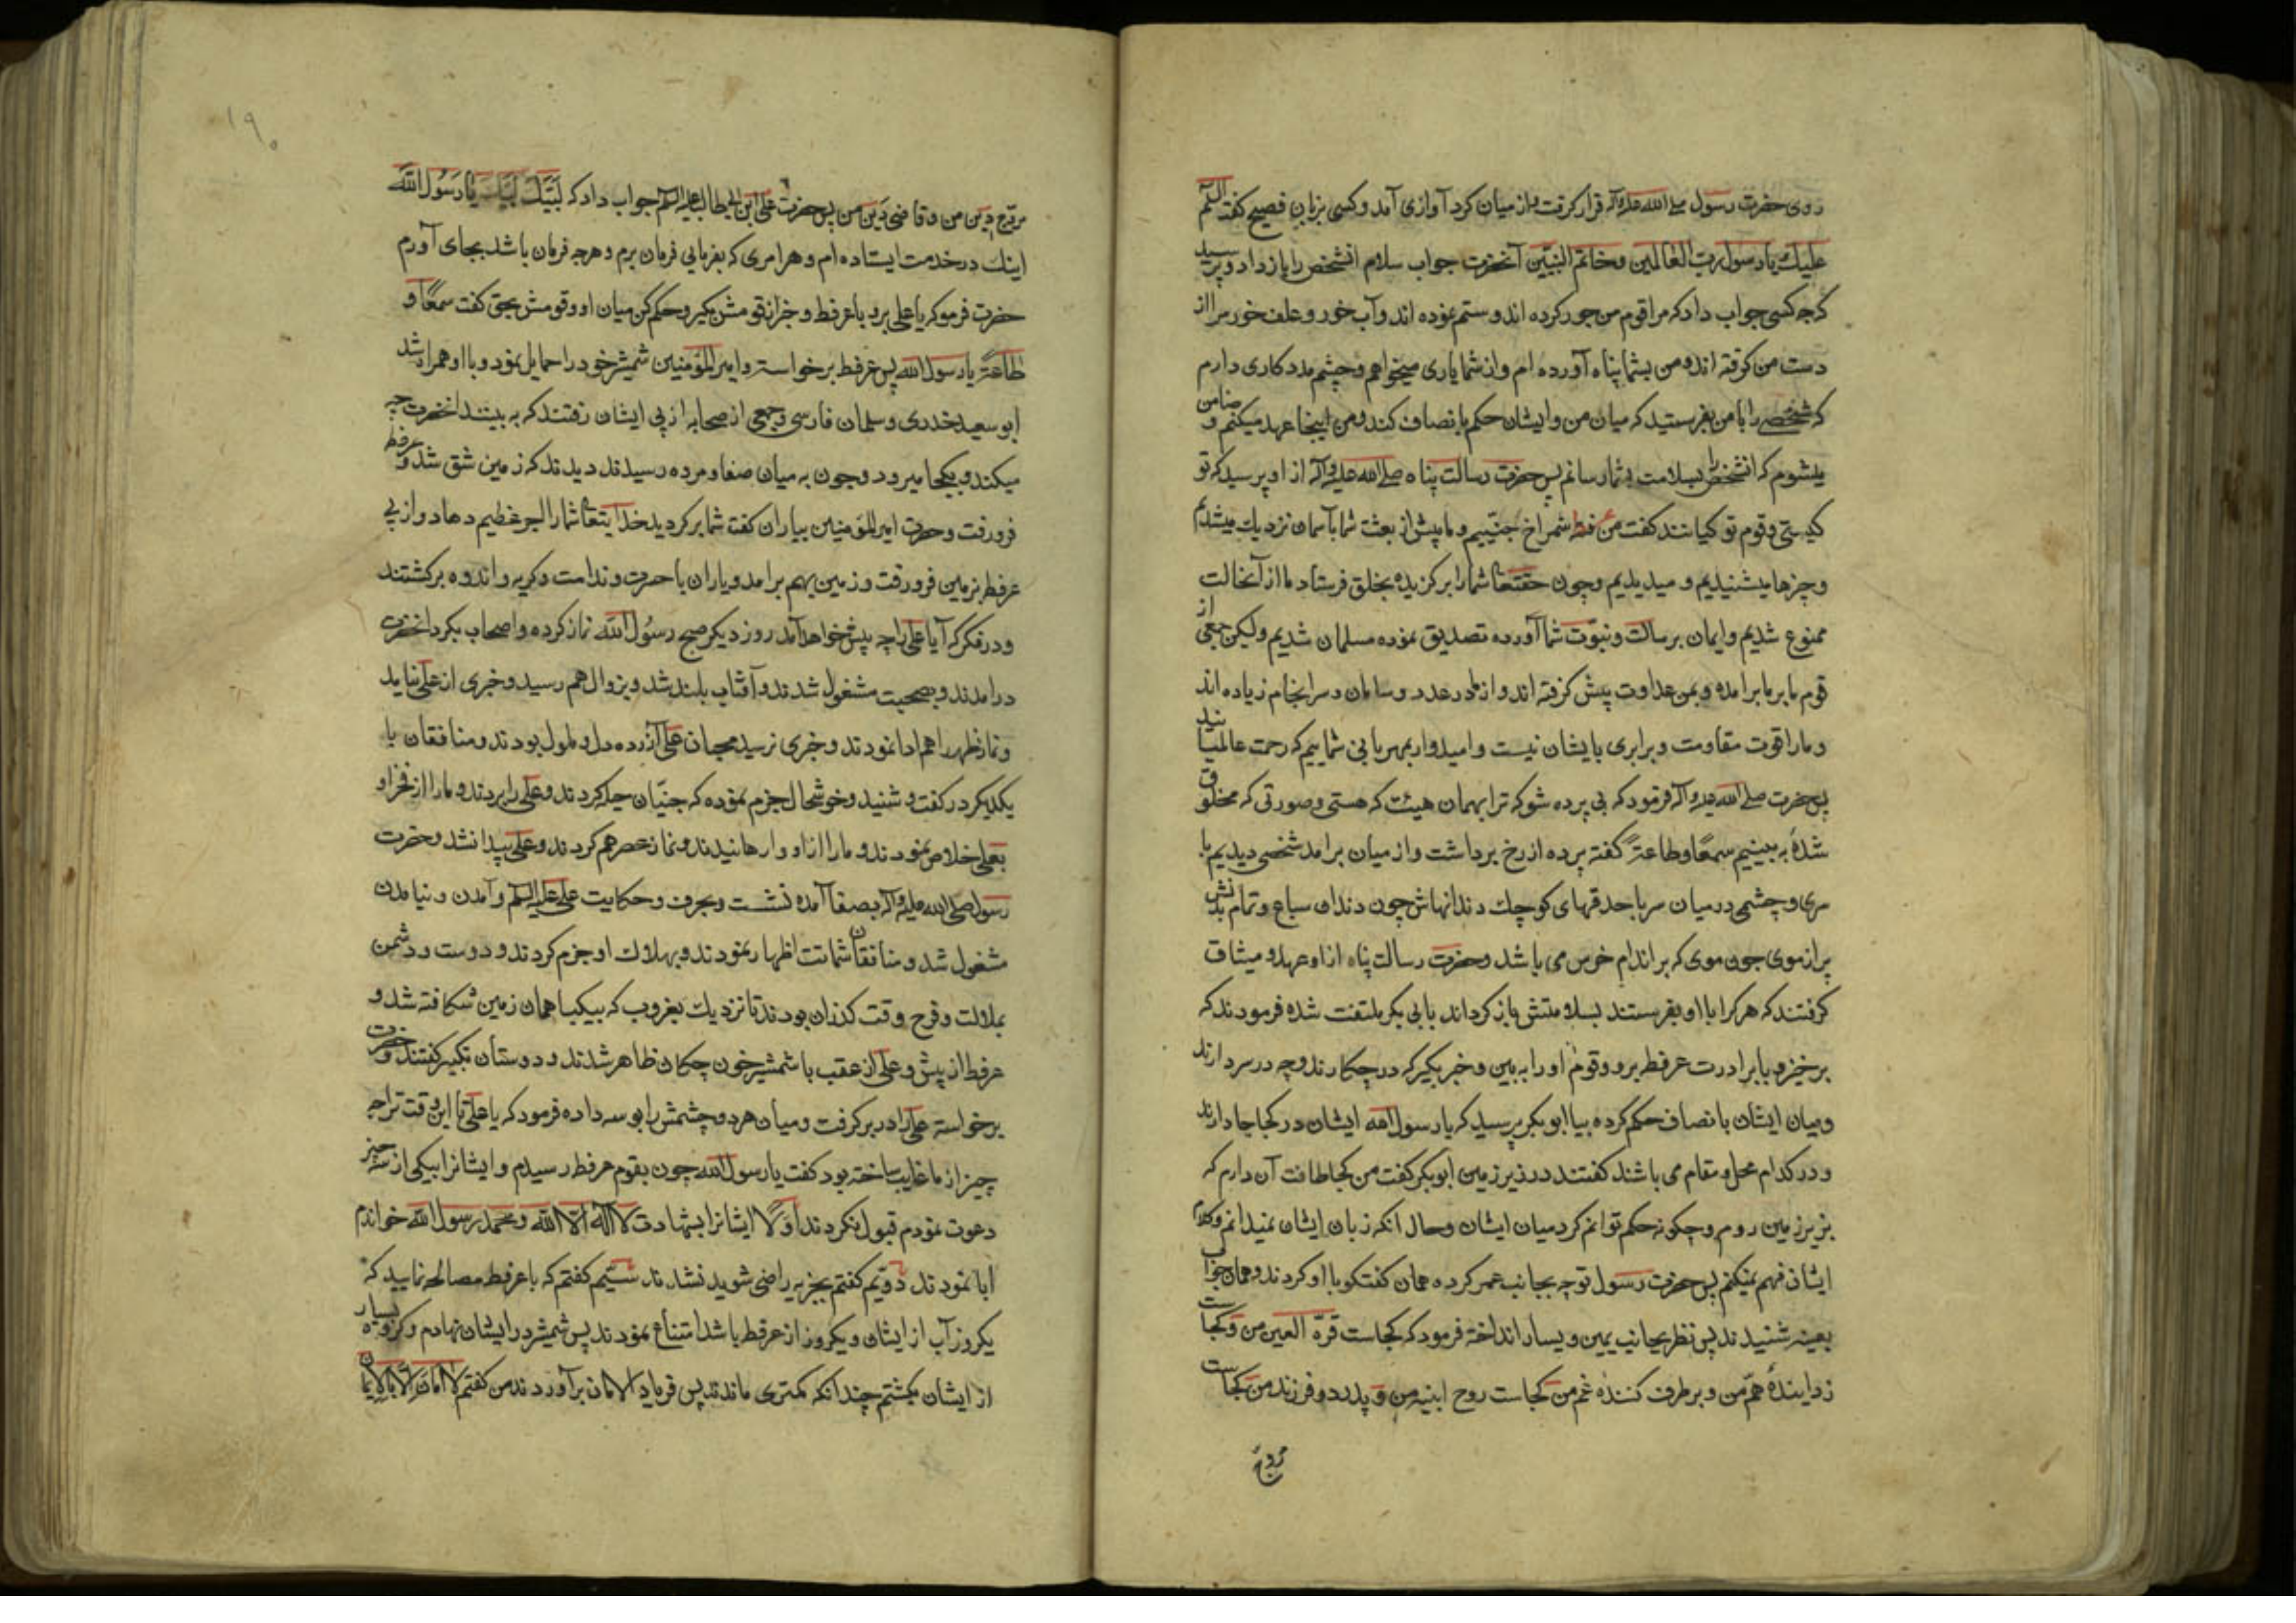 روی حضرت رسول صلی الله علیه وآله قرار گرفت از میان گرد آوازی آمد و کسی بزبان فصیح گفت السّلم
علیك یا رسول ربّ العالمین و خاتم النبیّین آنحضرت جواب سلام انشخص را باز داد و پرسید
که چه کسی جواب داد که مرا قوم من جور کرده اند و ستم نموده اند و آب خور و علف خور مرا از
دست من گرفته اند و من بشما پناه آورده ام و از شما یاری میخواهم و چشم مدد کاری دارم
که شخصی را با من بفرستید که میان من و ایشان حکم بانصاف کند و من اینجا عهد میکنم و ضامن
میشوم که انشخص را بسلامت بشما رسانم پس حضرت رسالت پناه صلی الله علیه وآله از او پرسید که تو
کیستی و قوم تو کیانند گفت من عرفطه شمراخ جنّییم و ما پیش از بعثت شما بآسمان نزدیك میشدیم
و چیزها میشنیدیم و میدیدیم و چون حقتعالی شما را برگزیده بخلق فرستاد ما از آنحالت
ممنوع شدیم و ایمان برسالت و نبوّت شما آورده تصدیق نموده مسلمان شدیم ولیکن جمعی از
قوم ما بر ما برامده و بمن عداوت پیش گرفته اند و از ما در عدد و سامان و سرانجام زیاده اند
و ما را قوت مقاومت و برابری بایشان نیست و امیدوار بمهربانی شماییم که رحمت عالمیانید
پس حضرت صلی الله علیه وآله فرمود که بی پرده شو که ترا بهمان هیئت که هستی و صورتی که مخلوق
شدۀ به بینیم سمعًا و طاعةً گفته پرده از رخ برداشت و از میان برامد شخصی دیدیم با
سری و چشمی در میان سر با حدقهای کوچك دندانهاش چون دندان سباع و تمام بدنش
پر از موی چون موی که بر اندام خرس می باشد و حضرت رسالت پناه از او عهد و میثاق
گرفتند که هر کرا با او بفرستند بسلامتش باز گرداند بابی بکر ملتفت شده فرمودند که
برخیز و با برادرت عرفط برو و قوم او را به بین و خبر بگیر که در چکارند و چه در سر دارند
و میان ایشان بانصاف حکم کرده بیا ابو بکر پرسید که یا رسول الله ایشان در کجا جا دارند
و در کدام محل و مقام می باشند گفتند در زیر زمین ابو بکر گفت من کجا طاقت آن دارم که
بزیر زمین روم و چگونه حکم توانم کرد میان ایشان و حال انکه زبان ایشان نمیدانم و کلام
ایشان فهم نمیکنم پس حضرت رسول توجه بجانب عمر کرده همان گفتگو با او کردند و همان جواب
بعینه شنیدند پس نظر بجانب یمین و یسار انداخته فرمود که کجاست قرّة العین من و کجاست
زدایندۀ همّ من و بر طرف کنندۀ غم من کجاست روح ابنیه من و پدر دو فرزند من کجاست
مروّج دین من و قاضی دین من پس حضرت علی ابن ابیطالب علیه السلم جواب داد که لبّیك لبّیك یا رسول الله
اینك در خدمت ایستاده ام و هر امری که بفرمایی فرمان برم و هر چه فرمان باشد بجای آورم
حضرت فرمو که یا علی برو با عرفط و حکم کن میان او و قومش بحق گفت سمعًا و
طاعةً یا رسول الله پس عرفط برخواسته و امیر المؤمنین شمشیر خود را حمایل نمود و با او همراه شد
ابو سعید خدری و سلمان فارسی و جمعی از صحابه از پی ایشان رفتند که به بینند انحضرت چه
میکند و بکجا میرود و چون به میان صفا و مروه رسیدند دیدند که زمین شق شد و عرفط
فرو رفت و حضرت امیر المؤمنین بیاران گفت شما بر گردید خدایتعالی شما را اجر عظیم دهاد و از پی
عرفط بزمین فرو رفت و زمین بهم برامد و یاران با حسرت و ندامت و گریه و اندوه برگشتند
و در فکر که آیا علی را چه پیش خواهد آمد روز دیگر صبح رسول الله نماز کرده و اصحاب بگرد انحضرت
درامدند و بصحبت مشغول شدند و آفتاب بلند شد و بزوال هم رسید و خبری از علی نیامد
و نماز ظهر را هم ادا نمودند و خبری نرسید محبان علی آزرده دل و ملول بودند و منافقان با
یکدیگر در گفت و شنید و خوشحال جزم نموده که جنیّان حیله کردند و علی را بردند و ما را از فخر او
بعلی خلاص نمودند و ما را از او وارهانیدند و نماز عصر هم کردند و علی پیدا نشد و حضرت
رسول صلی الله علیه وآله بصفا آمده نشست و بحرف و حکایت علی علیه السلم و آمدن و نیامدن
مشغول شد و منافقان شماتت اظهار نمودند و بهلاك او جزم کردند و دوست و دشمن
بملالت و فرح وقت گذران بودند تا نزدیك بغروب که بیکبار همان زمین شکافته شد و
عرفط از پیش و علی از عقب با شمشیر خون چکان ظاهر شدند و دوستان تکبیر گفتند و حضرت
برخواسته علی را در بر گرفت و میان هر دو چشمش را بوسه داده فرمود که یا علی تا این وقت ترا چه
چیز از ما غایب ساخته بود گفت یا رسول الله چون بقوم عرفط رسیدم و ایشانرا بیکی از سه چیز
دعوت نمودم قبول نکردند اوّلًا ایشانرا بشهادت لا اله الا الله و محمد رسول الله خواندم
ابا نمودند دویّم گفتم بجزیه راضی شوید نشدند سیّیم گفتم که با عرفط مصالحه نمایید که
یکروز آب از ایشان و یکروز از عرفط باشد امتناع نمودند پس شمشیر در ایشان نهادم و گروه بسیار
از ایشان بکشتم چندانکه کمتری ماندند پس فریاد الامان برآوردند من گفتم لا امان الّا بالایمان